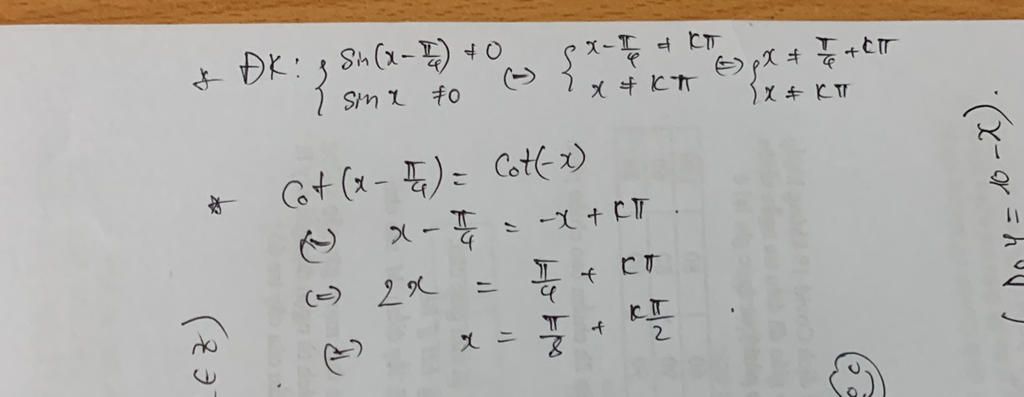 * ĐK: { sin(x - π/4) ≠ 0 (=) { x - π/4 ≠ kπ (=) { x ≠ π/4 + kπ
sin x ≠ 0 x ≠ kπ x ≠ kπ
* Cot(x - π/4) = Cot(-x)
(=) x - π/4 = -x + kπ.
(=) 2x = π/4 + kπ
(=) x = π/8 + kπ/2.